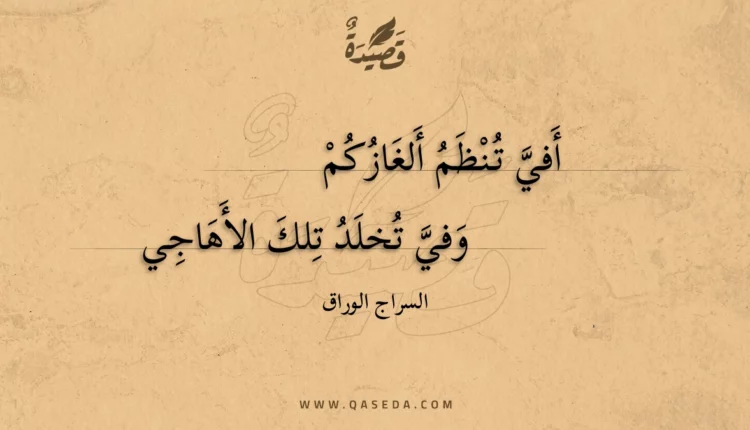 قَصِيْدَةٌ
أَفيَّ تُنْظَمُ أَلغَازُكُمْ
وَفيَّ تُخلَدُ تِلكَ الأَهَاجِي
السراج الوراق
WWW.QASEDA.COM